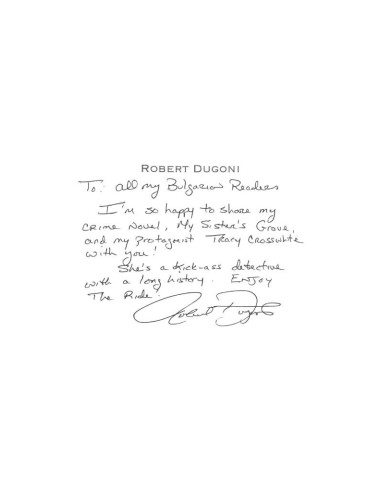 ROBERT DUGONI
To: all my Bulgarian Readers
I'm so happy to share my
crime novel, My Sister's Grave,
and my protagonist Tracy Crosswhite
with you!
She's a kick-ass detective
with a long history. Enjoy
The Ride!
Robert Dugoni